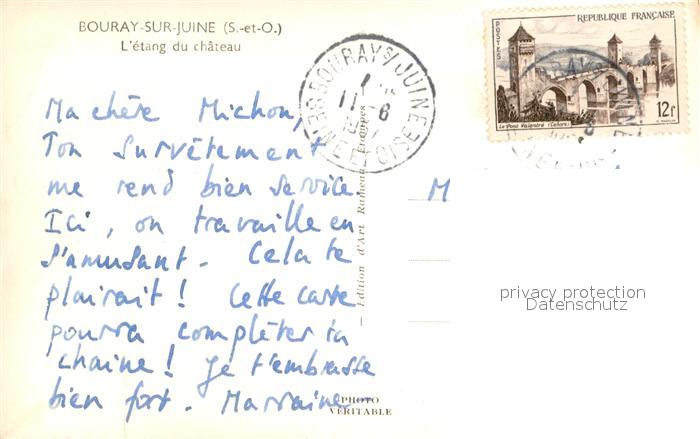 BOURAY-SUR-JUINE (S.-et-O.)
L'étang du château
BOURAY S/JUINE
SEINE ET OISE
11 - 6
POSTES
REPUBLIQUE FRANÇAISE
12f
Le Pont Valentré (Cahors)
Ma chère Michon,
Ton survêtement
me rend bien service.
Ici, on travaille en
s'amusant. Cela te
plairait! Cette carte
pourra compléter ta
chaine! Je t'embrasse
bien fort. Marraine
— Edition d'Art Rameau, Etampes —
PHOTO
VÉRITABLE
M
privacy protection
Datenschutz